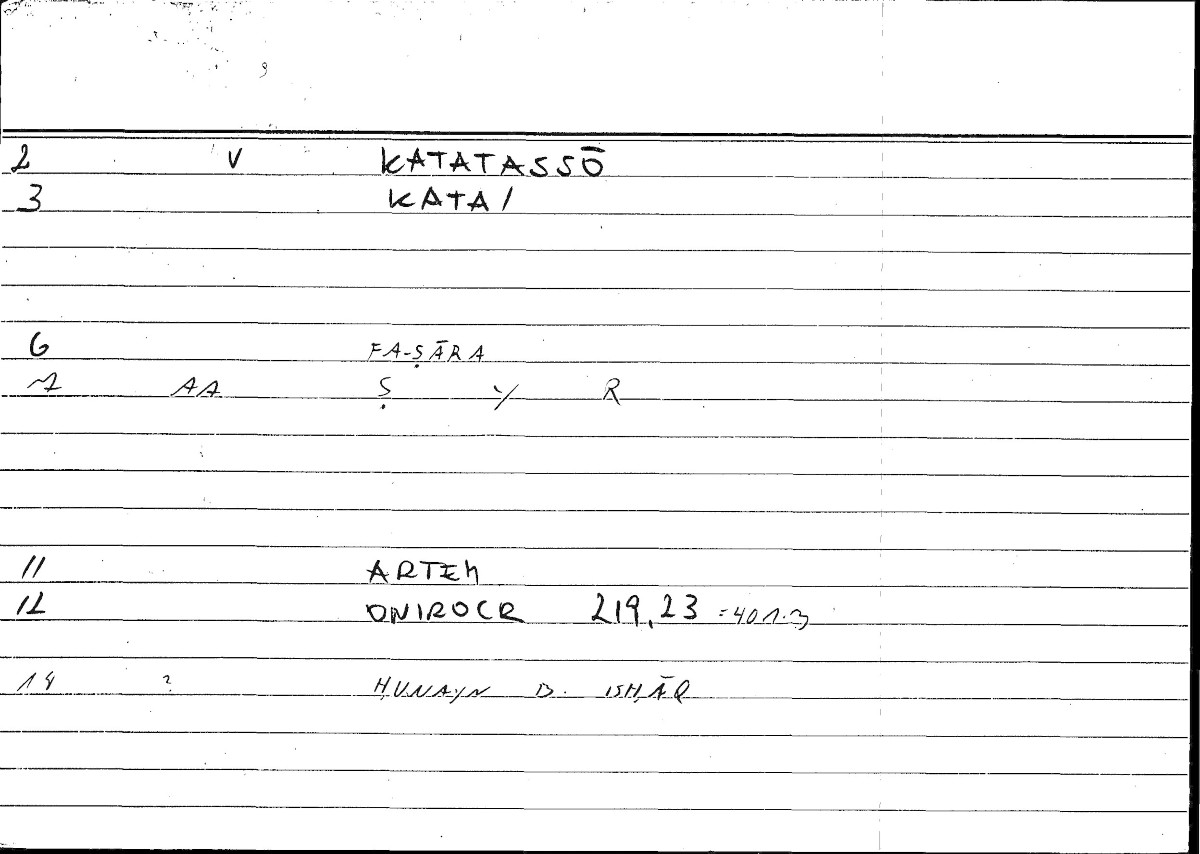 2 V KATATASSŌ
3 KATA/
6 FA-ṢĀRA
7 AA Ṣ Y R
11 ARTEM
12 ONIROCR 219,23 =401.3
14 ? ḤUNAYN B. ISḤĀQ